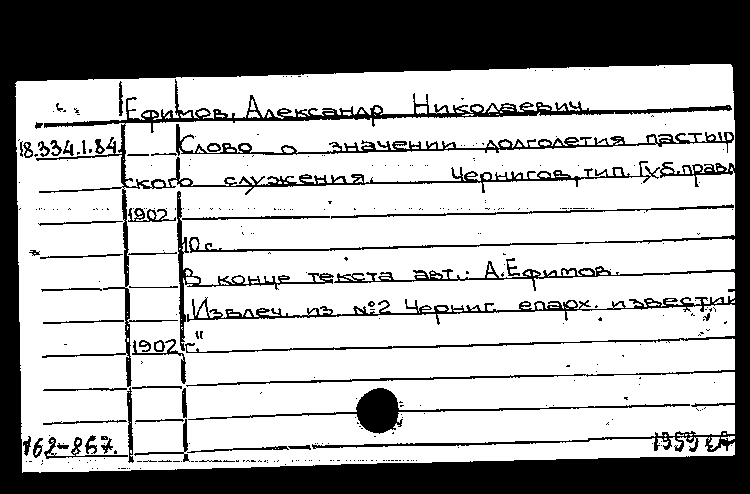 Ефимов, Александр Николаевич.
18.334.1.84. Слово о значении долголетия пастыр
ского служения. Чернигов, тип. Губ. правл
1902
10 с.
В конце текста авт.: А.Ефимов.
„Извлеч. из №2 Черниг. епарх. известий
1902 г."
162-867.